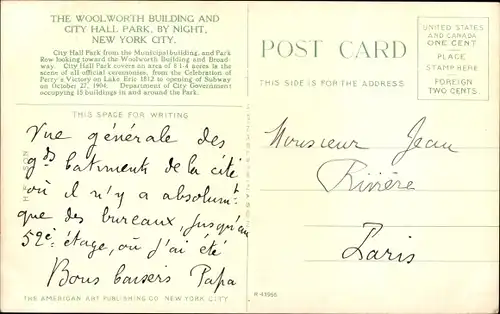 THE WOOLWORTH BUILDING AND
CITY HALL PARK, BY NIGHT,
NEW YORK CITY.
City Hall Park from the Municipal building, and Park
Row looking toward the Woolworth Building and Broad-
way. City Hall Park covers an area of 8 1-4 acres is the
scene of all official ceremonies, from the Celebration of
Perry's Victory on Lake Erie 1812 to opening of Subway
on October 27, 1904. Department of City Government
occupying 15 buildings in and around the Park.
THIS SPACE FOR WRITING
Vue générale des
gds batiments de la cité
où il n'y a absolumt
que des bureaux, jusqu'au
52e étage, où j'ai été
Bons baisers Papa
THE AMERICAN ART PUBLISHING CO. NEW YORK CITY
POST CARD
THIS SIDE IS FOR THE ADDRESS
UNITED STATES
AND CANADA
ONE CENT
PLACE
STAMP HERE
FOREIGN
TWO CENTS.
Monsieur Jean
Rivière
Paris